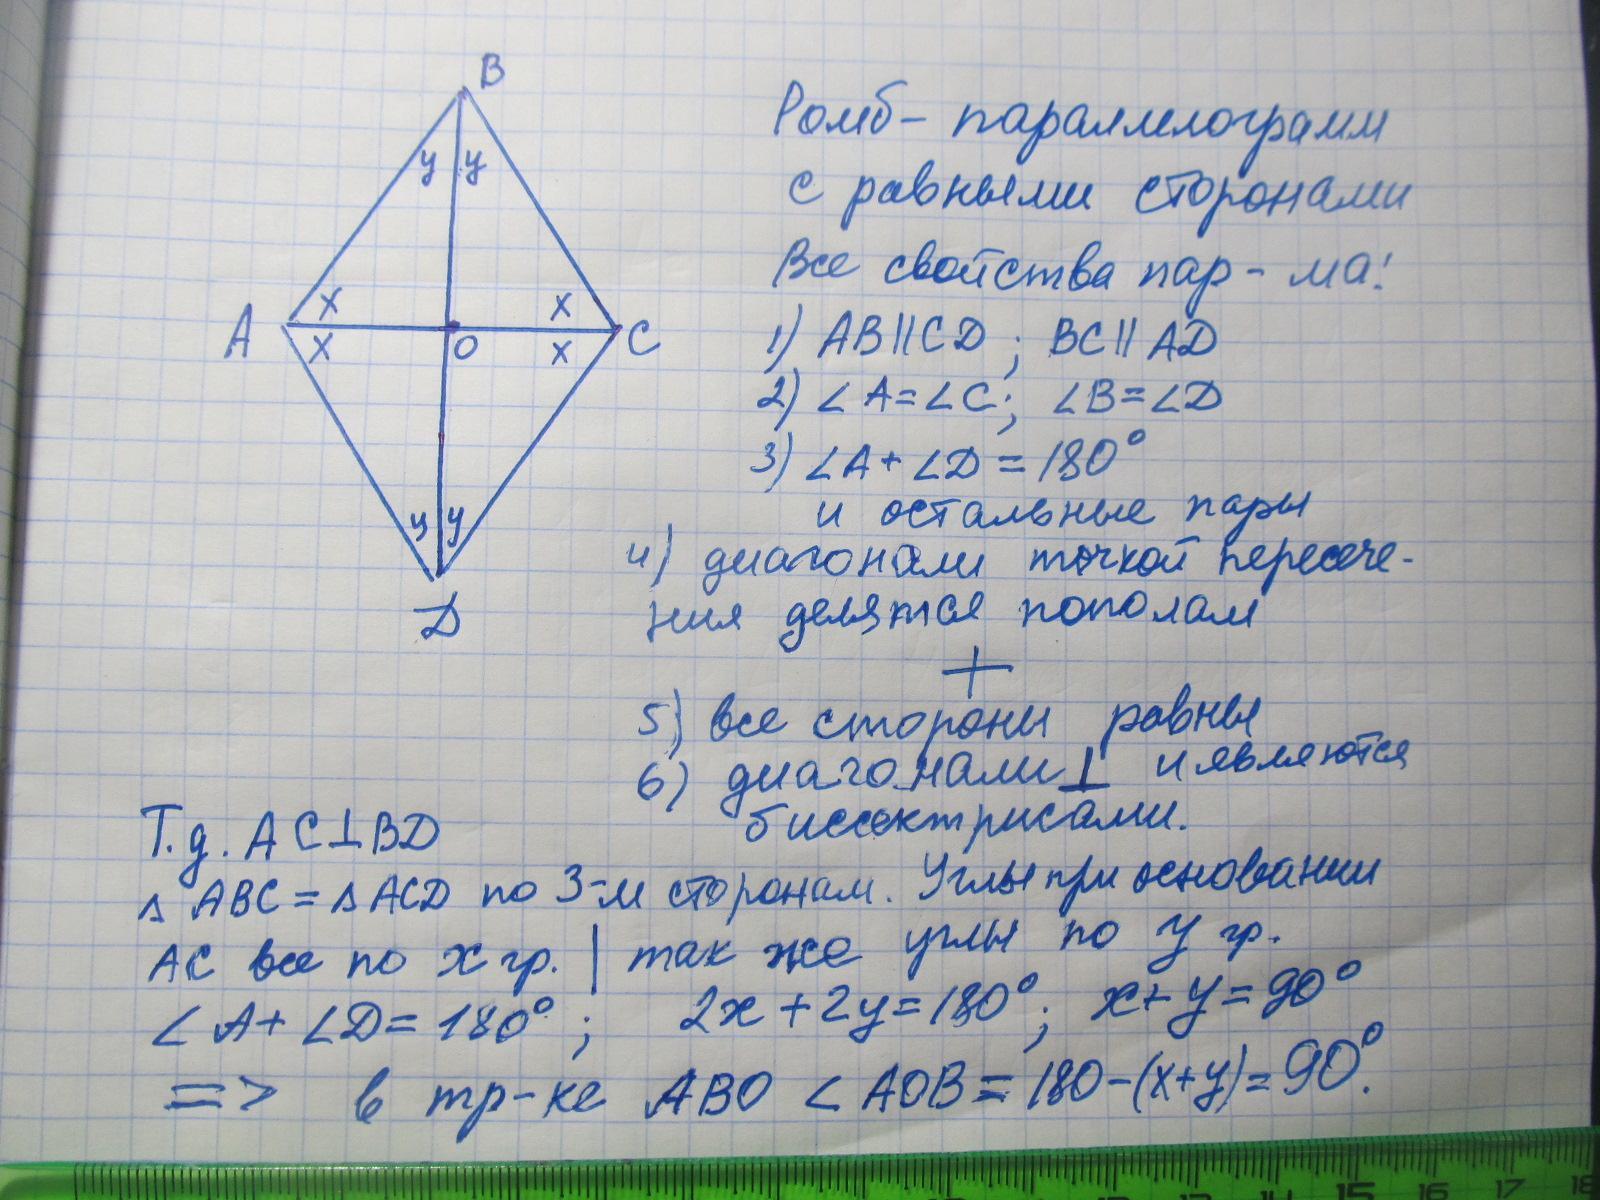 B
y y
A x x C
x O x
y y
D
Ромб - параллелограмм
с равными сторонами
Все свойства пар-ма!
1) AB||CD ; BC||AD
2) ∠A=∠C; ∠B=∠D
3) ∠A+∠D=180°
и остальные пары
4) диагонали точкой пересече-
ния делятся пополам
+
5) все стороны равны
6) диагонали ⊥ и являются
биссектрисами.
Т.д. AC⊥BD
△ ABC = △ ACD по 3-м сторонам. Углы при основании
AC все по x гр. | так же углы по y гр.
∠A+∠D=180° ; 2x+2y=180° ; x+y=90°
=> в тр-ке ABO ∠AOB=180-(x+y)=90°.
10 11 12 13 14 15 16 17 18